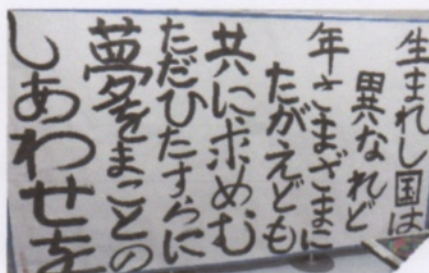 生まれし国は
異なれど
年さまざまに
たがえども
共に求めむ
ただひたすらに
夢をまことの
しあわせを